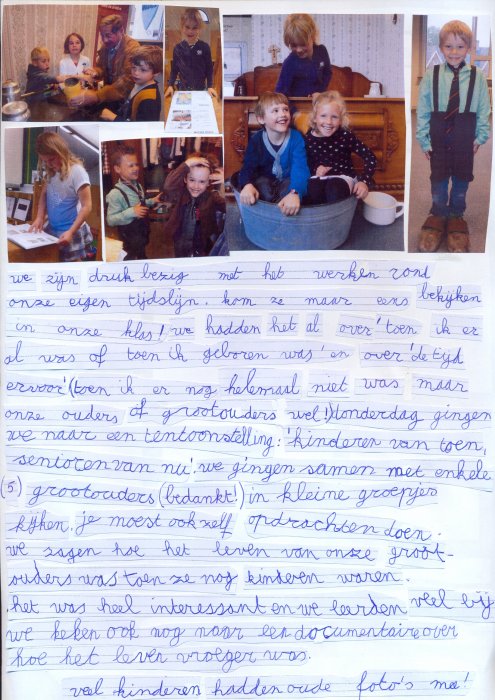 we zijn druk bezig met het werken rond
onze eigen tijdslijn. kom ze maar eens bekijken
in onze klas! we hadden het al over 'toen ik er
al was of toen ik geboren was' en over 'de tijd
ervoor' (toen ik er nog helemaal niet was maar
onze ouders of grootouders wel!) donderdag gingen
we naar een tentoonstelling: 'kinderen van toen,
senioren van nu'. we gingen samen met enkele
(5) grootouders (bedankt!) in kleine groepjes
kijken. je moest ook zelf opdrachten doen.
we zagen hoe het leven van onze groot-
ouders was toen ze nog kinderen waren.
het was heel interessant en we leerden veel bij
we keken ook nog naar een documentaire over
hoe het leven vroeger was.
veel kinderen hadden oude foto's mee!